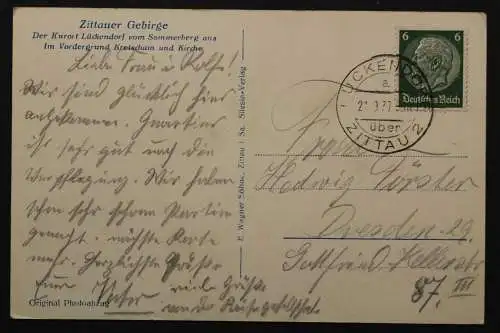 Zittauer Gebirge
Der Kurort Lückendorf vom Sommerberg aus
Im Vordergrund Kretscham und Kirche
Liebe Frau u. Rolf!
Wir sind glücklich hier
angekommen. Quartier
ist sehr gut auch die
Verpflegung. Wir haben
schon sehr schöne Partien
gemacht. nächste Karte
mehr. Herzlichste Grüße
Euer Vater
viele Grüße
von der
Original Photoabzug
E. Wagner Söhne, Zittau i. Sa.
6 6
Deutsches Reich
LÜCKENDORF
über
ZITTAU 2
Frau
Hedwig Förster
Dresden-29
Gottfried-Kellerstr
87. III